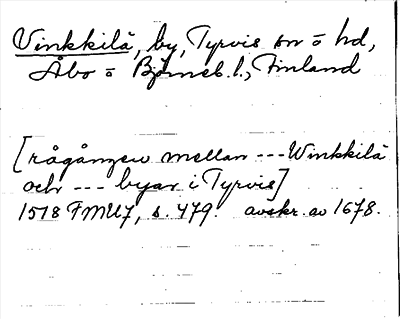 Vinkkilä, by, Tyrvis sn o hd,
Åbo o Björneb. l., Finland
[rågången mellan --- Winkkilä
och --- byar i Tyrvis]
1518 FMU7, s. 479. avskr. av 1678.